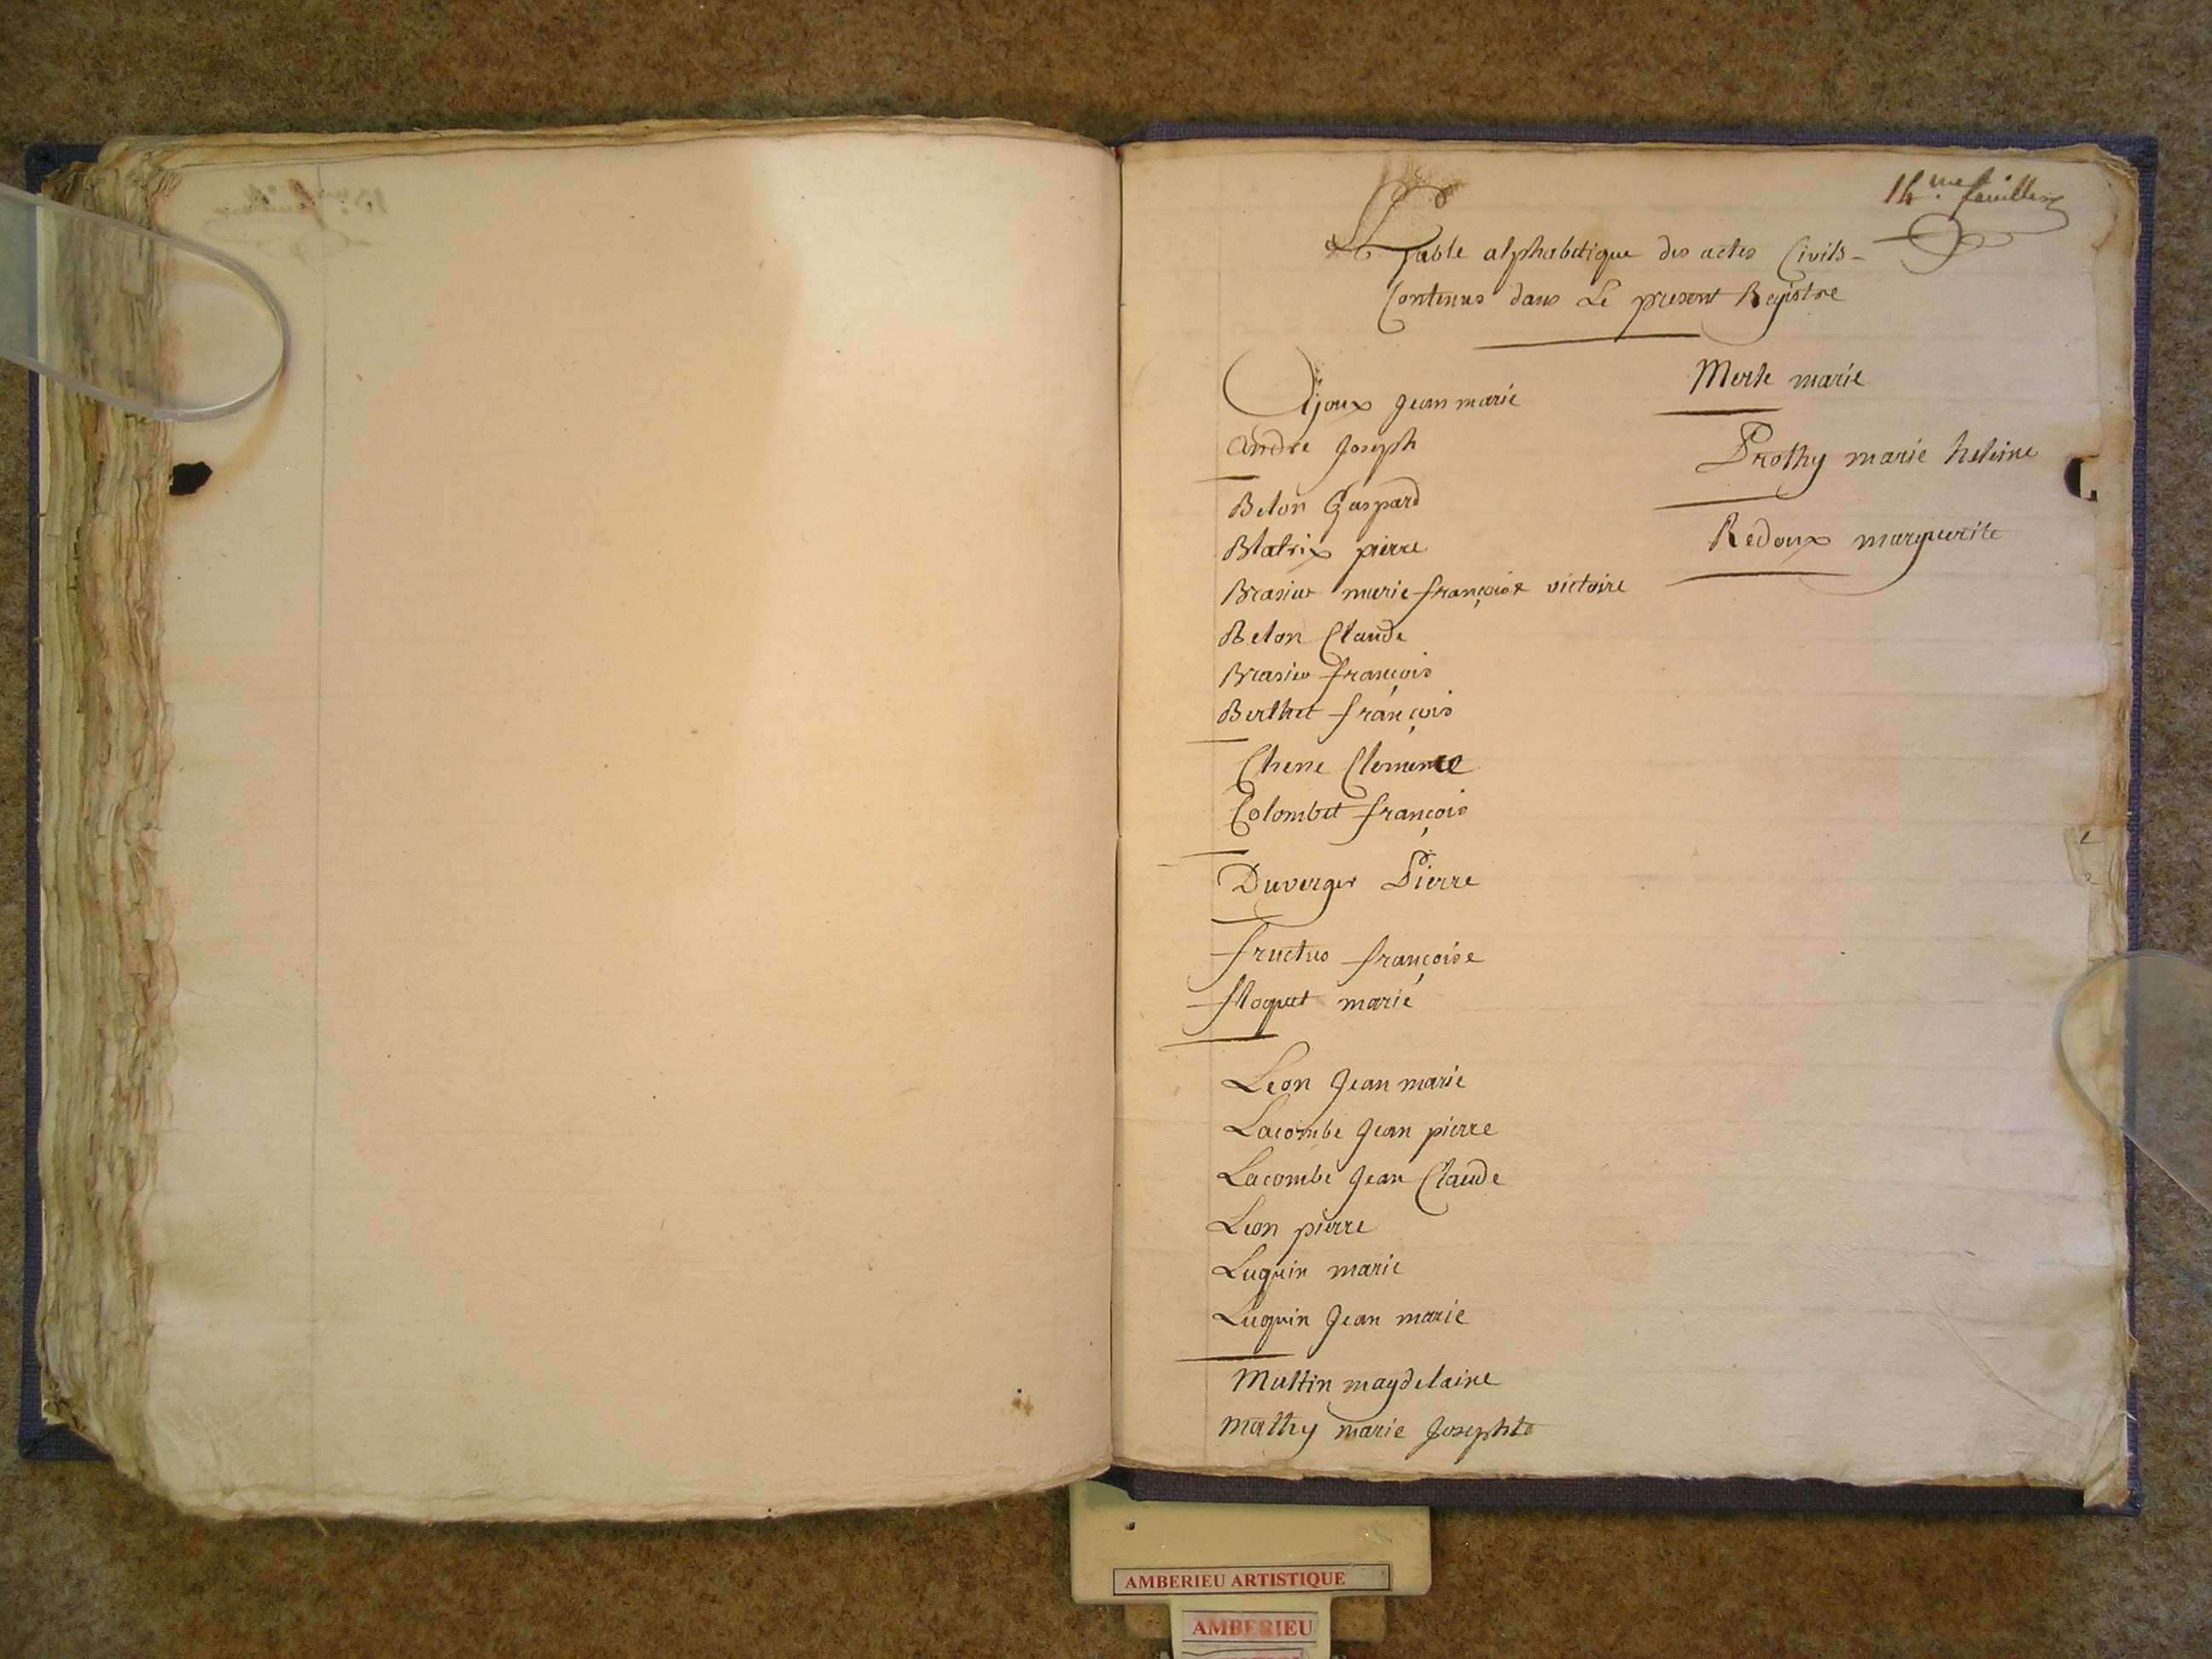 14.me feuillet
Table alphabetique des actes Civils
Contenus dans Le present Registre
Ajoux Jean marie
andré Joseph
Belon Gaspard
Blatrix pierre
Brasier marie françoise victoire
Belon Claude
Brasier françois
Berthet françois
Chene Clemence
Colombet françois
Duverger Pierre
fructus françoise
floquet marie
Leon Jean marie
Lacombe Jean pierre
Lacombe Jean Claude
Leon pierre
Luquin marie
Luquin Jean marie
Multin magdelaine
mathy marie Josephte
Merle marie
Prothy marie heleine
Redoux marguerite
AMBERIEU ARTISTIQUE
AMBERIEU